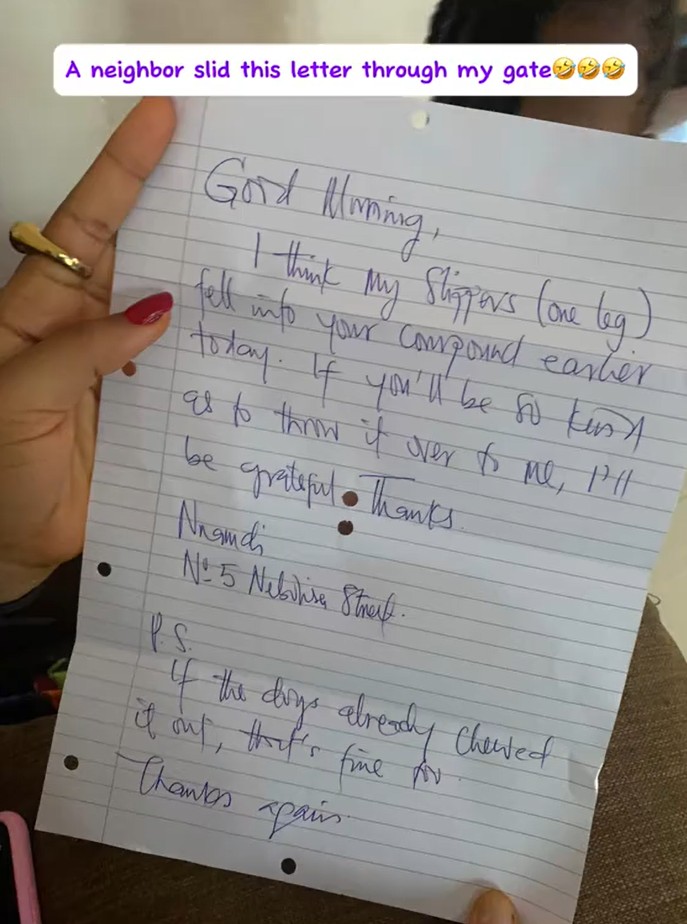 A neighbor slid this letter through my gate🤣🤣🤣
Good Morning,
I think my Slippers (one leg)
fell into your compound earlier
today. If you'll be so kind
as to throw it over to me, I'll
be grateful. Thanks.
Nnamdi
No 5 Street.
P.S.
If the dogs already chewed
it out, that's fine
Thanks again.